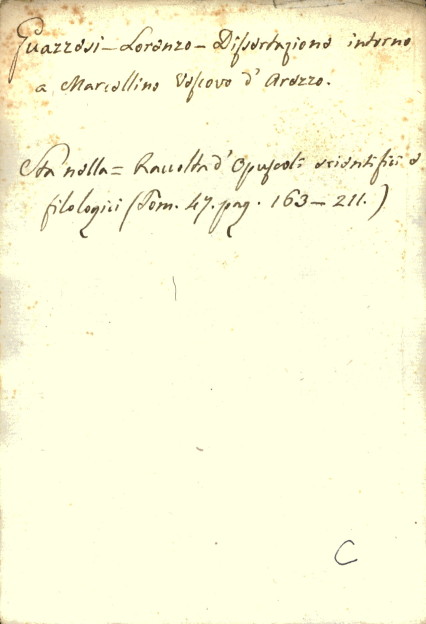 Guazzesi - Lorenzo - Dissertazione intorno
a Marcellino Vescovo d' Arezzo.
Sta nella = Raccolta d' Opuscoli scientifici e
filologici (Tom. 47. pag. 163 - 211.)
C